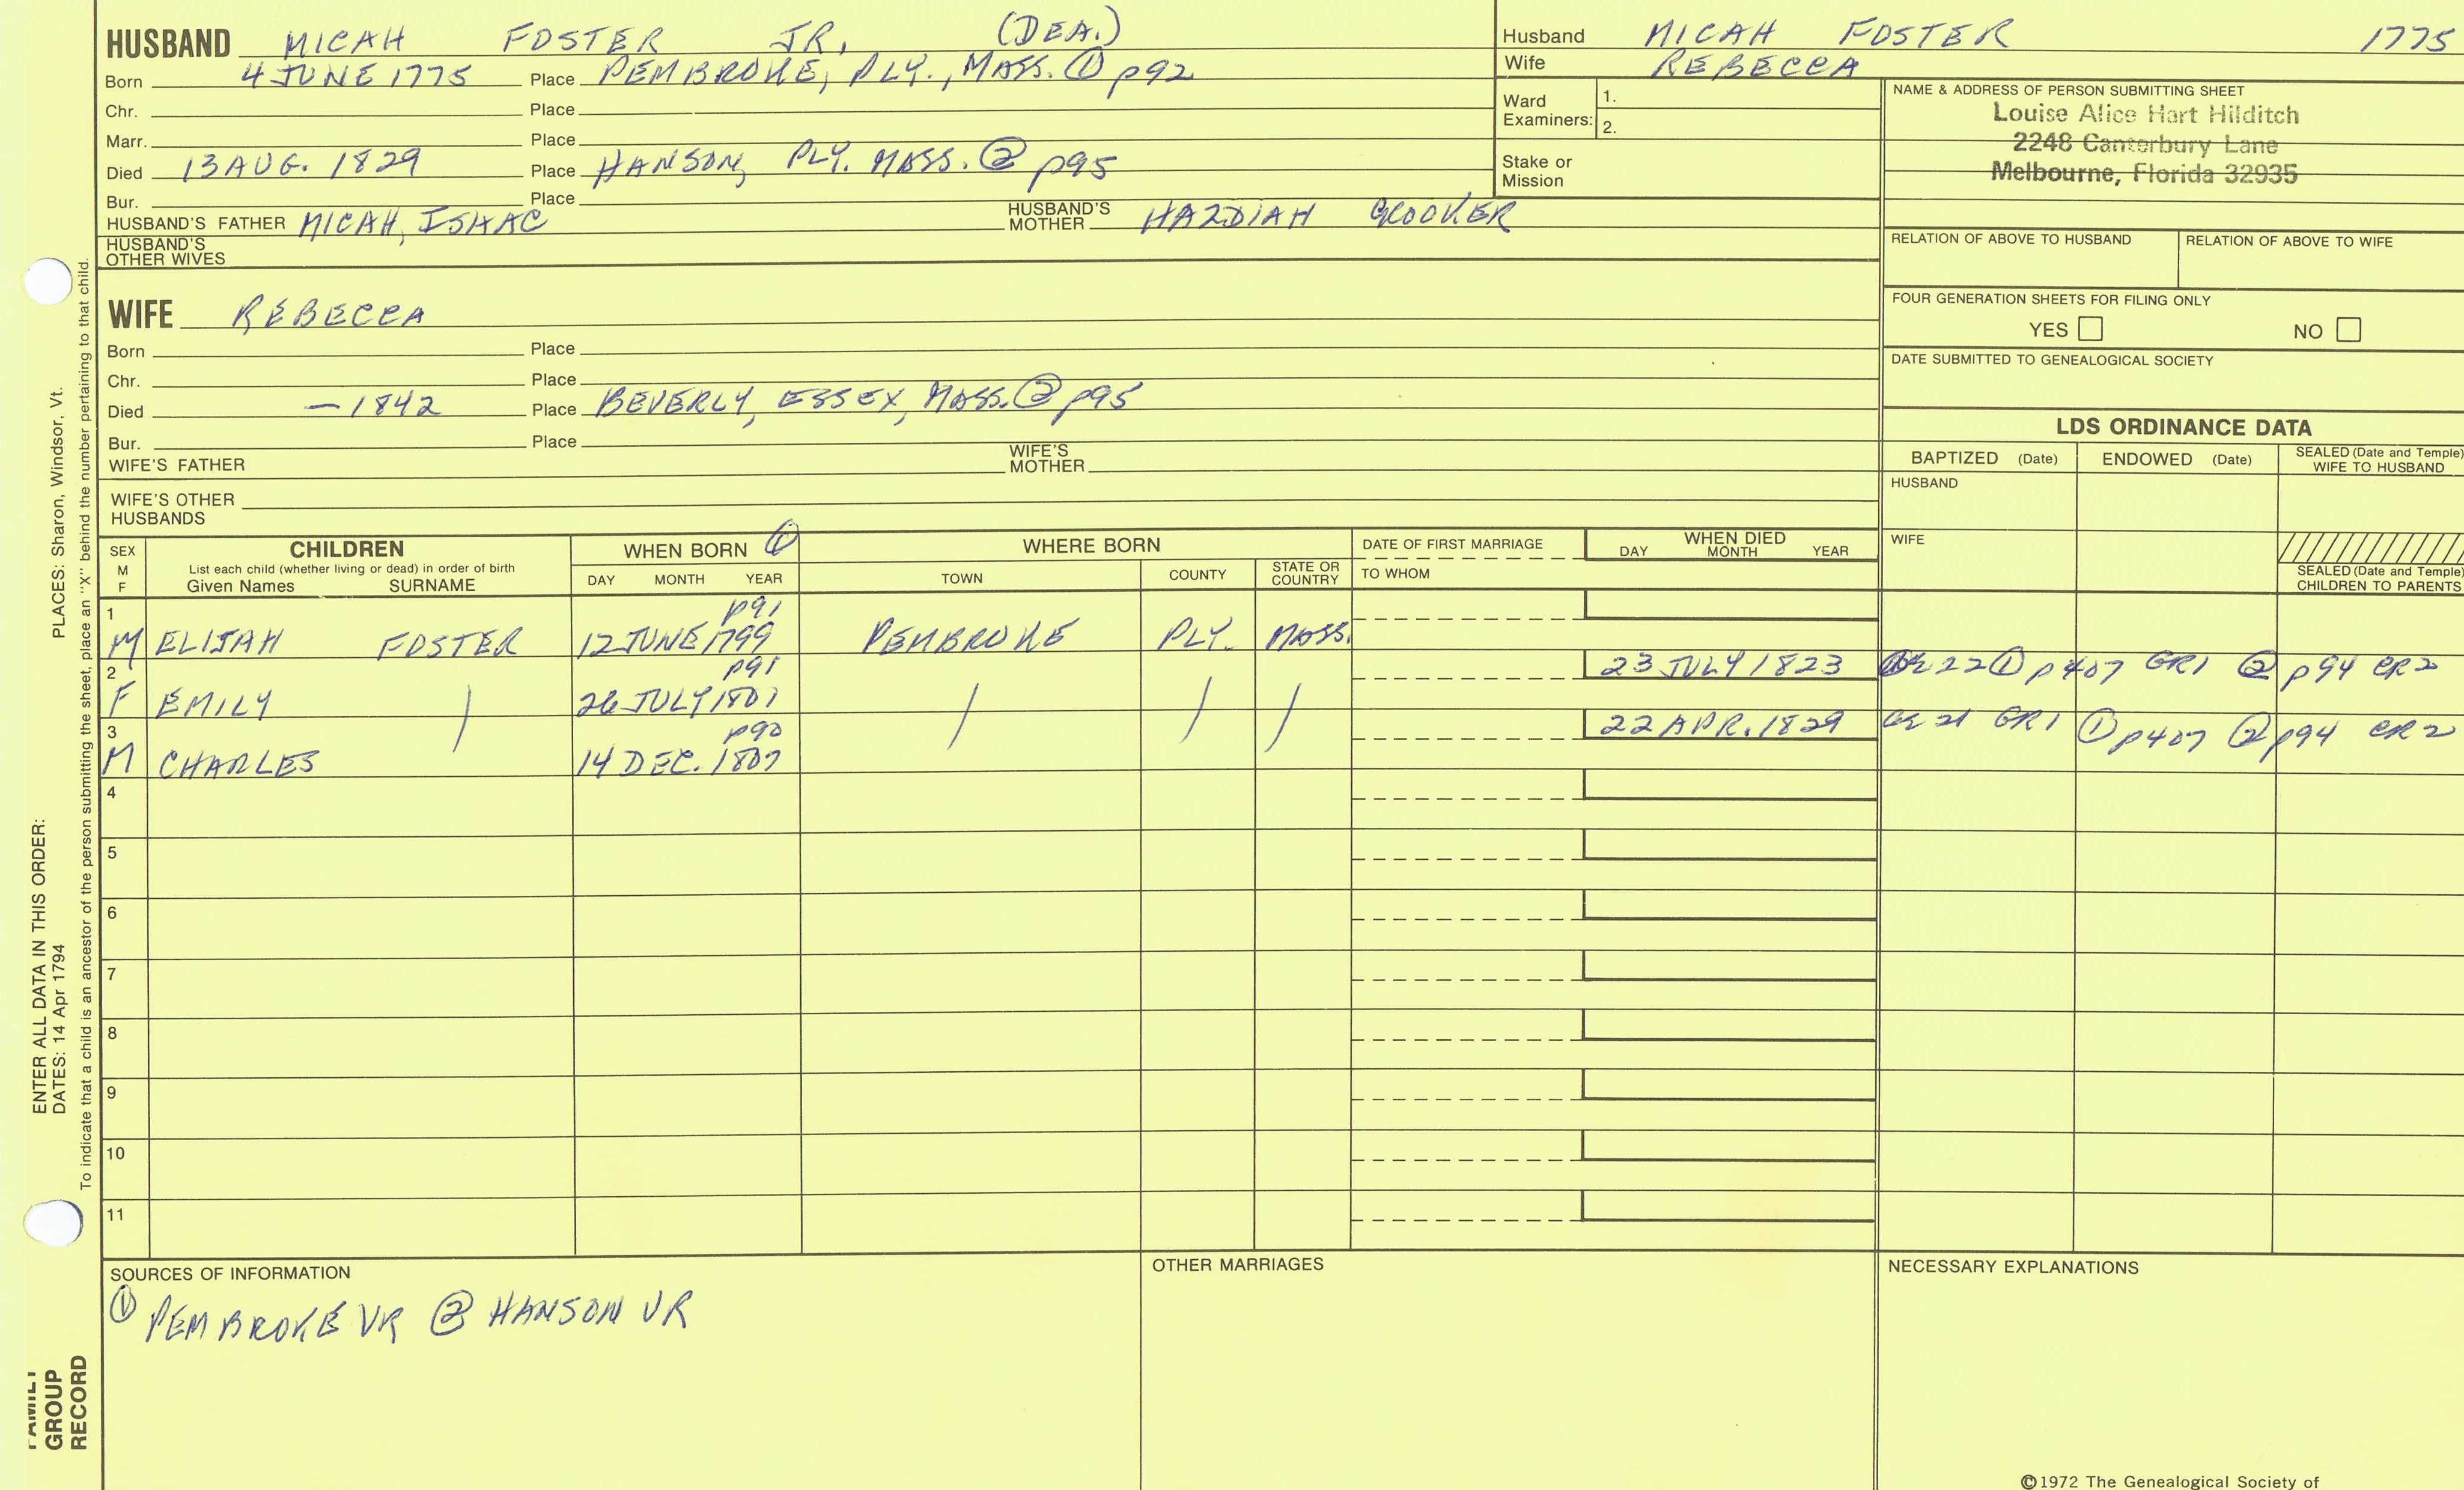 HUSBAND MICAH FOSTER JR, (DEA.)
Born 4 JUNE 1775 Place PEMBROKE, PLY., MASS. ① p92
Chr. Place
Marr. Place
Died 13 AUG. 1829 Place HANSON, PLY. MASS. ② p95
Bur. Place
HUSBAND'S FATHER MICAH, ISAAC HUSBAND'S MOTHER HAZDIAH CROOKER
HUSBAND'S OTHER WIVES
Husband MICAH FOSTER 1775
Wife REBECCA
Ward Examiners: 1. 2.
Stake or Mission
NAME & ADDRESS OF PERSON SUBMITTING SHEET
Louise Alice Hart Hilditch
2248 Canterbury Lane
Melbourne, Florida 32935
RELATION OF ABOVE TO HUSBAND RELATION OF ABOVE TO WIFE
FOUR GENERATION SHEETS FOR FILING ONLY
YES NO
DATE SUBMITTED TO GENEALOGICAL SOCIETY
WIFE REBECCA
Born Place
Chr. Place
Died — 1842 Place BEVERLY, ESSEX, MASS. ② p95
Bur. Place
WIFE'S FATHER WIFE'S MOTHER
WIFE'S OTHER HUSBANDS
LDS ORDINANCE DATA
BAPTIZED (Date) ENDOWED (Date) SEALED (Date and Temple) WIFE TO HUSBAND
HUSBAND
WIFE
SEALED (Date and Temple) CHILDREN TO PARENTS
SEX M F CHILDREN WHEN BORN ① WHERE BORN DATE OF FIRST MARRIAGE WHEN DIED
List each child (whether living or dead) in order of birth
Given Names SURNAME DAY MONTH YEAR TOWN COUNTY STATE OR COUNTRY TO WHOM DAY MONTH YEAR
1 p91
M ELIJAH FOSTER 12 JUNE 1799 PEMBROKE PLY. MASS.
2 p91 23 JULY 1823 22 ① p407 GR1 ② p94 CR2
F EMILY 26 JULY 1801
3 p90 22 APR. 1829 21 GR1 ① p407 ② p94 CR2
M CHARLES 14 DEC. 1807
4
5
6
7
8
9
10
11
SOURCES OF INFORMATION
① PEMBROKE VR ② HANSON VR
OTHER MARRIAGES
NECESSARY EXPLANATIONS
©1972 The Genealogical Society of
PLACES: Sharon, Windsor, Vt.
To indicate that a child is an ancestor of the person submitting the sheet, place an "X" behind the number pertaining to that child.
ENTER ALL DATA IN THIS ORDER:
DATES: 14 Apr 1794
FAMILY GROUP RECORD